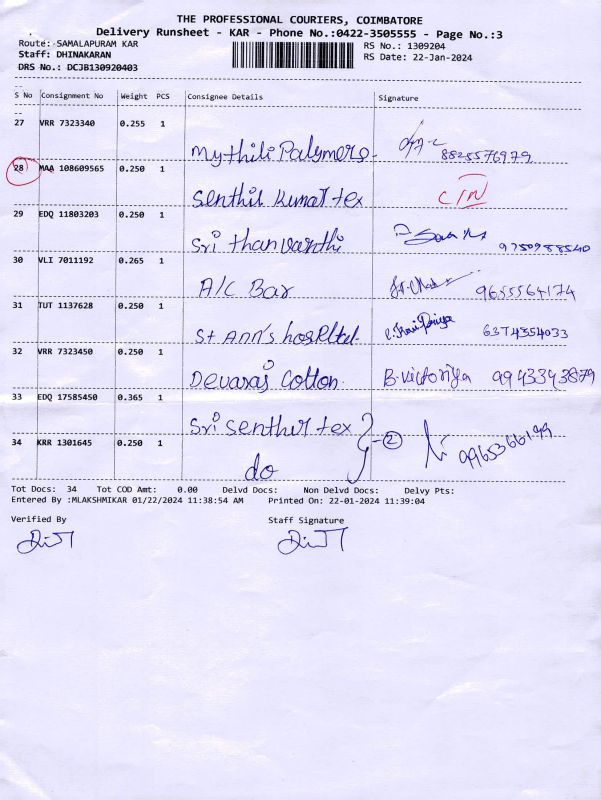 THE PROFESSIONAL COURIERS, COIMBATORE
Delivery Runsheet - KAR - Phone No.:0422-3505555 - Page No.:3
Route: SAMALAPURAM KAR
RS No.: 1309204
Staff: DHINAKARAN
RS Date: 22-Jan-2024
DRS No.: DCJB130920403
S No Consignment No Weight PCS Consignee Details Signature
27 VRR 7323340 0.255 1
Mythili Polymers - 8825576979
28 MAA 108609565 0.250 1
Senthil Kumar tex C/N
29 EDQ 11803203 0.250 1
Sri thanvanthi 9750988540
30 VLI 7011192 0.265 1
A/C Bar 9655564174
31 TUT 1137628 0.250 1
St Ann's hospital. 6374554033
32 VRR 7323450 0.250 1
Devaraj Cotton. B.Victoriya 9943343879
33 EDQ 17585450 0.365 1
Sri Senthur tex } - 2
34 KRR 1301645 0.250 1
do 9965366199
Tot Docs: 34 Tot COD Amt: 0.00 Delvd Docs: Non Delvd Docs: Delvy Pts:
Entered By :MLAKSHMIKAR 01/22/2024 11:38:54 AM Printed On: 22-01-2024 11:39:04
Verified By Staff Signature